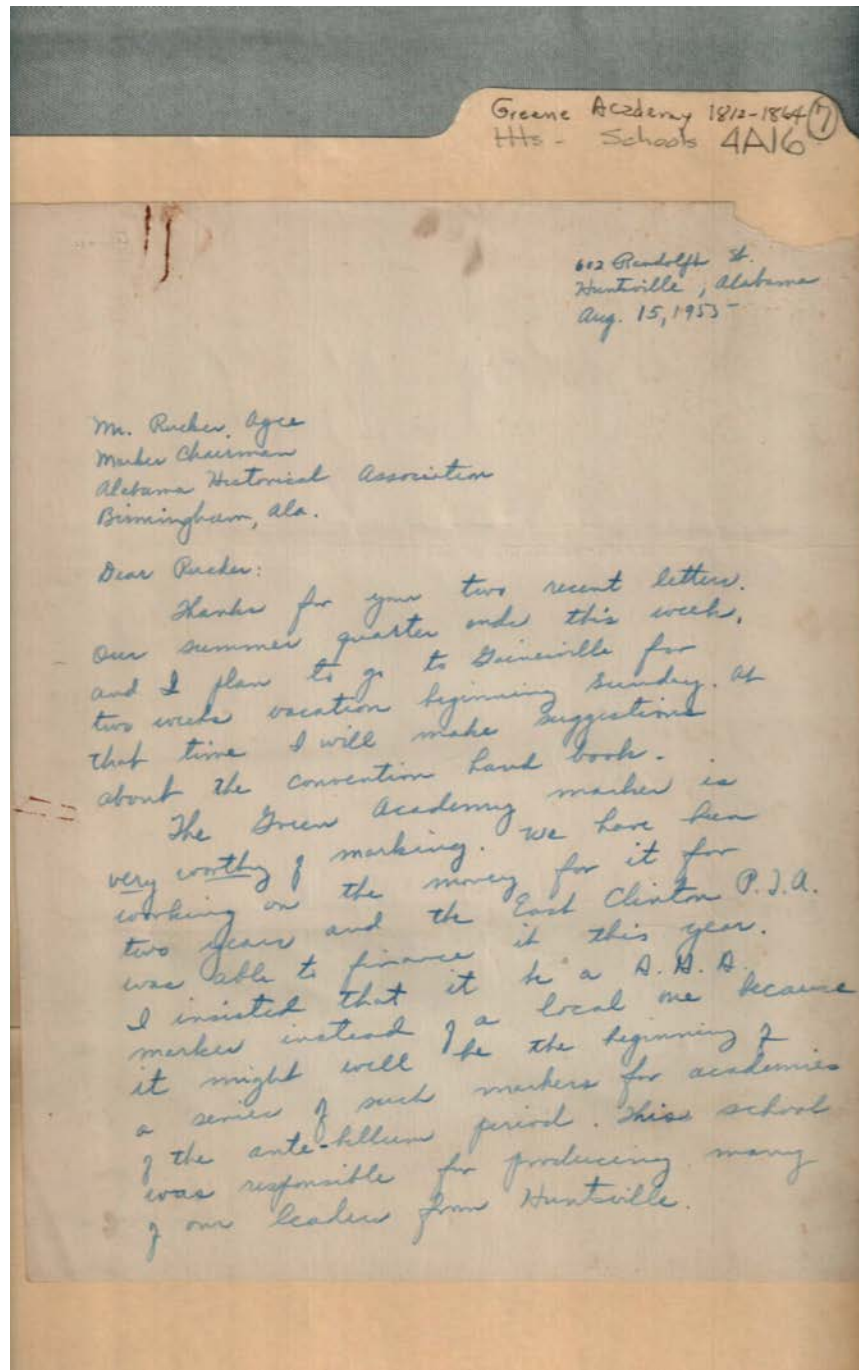 Greene Academy 1812-1864 7
Hts - Schools 4A16
602 Randolph St.
Huntsville, Alabama
Aug. 15, 1955
Mr. Rucker Agee
Marker Chairman
Alabama Historical Association
Birmingham, Ala.
Dear Rucker:
Thanks for your two recent letters.
Our summer quarter ends this week,
and I plan to go to Gainesville for
two weeks vacation beginning Sunday. At
that time I will make suggestions
about the convention hand book.
The Green Academy marker is
very worthy of marking. We have been
working on the money for it for
two years and the East Clinton P.T.A.
was able to finance it this year.
I insisted that it be a A.H.A.
marker instead of a local one because
it might well be the beginning of
a series of such markers for academies
of the ante-bellum period. This school
was responsible for producing many
of our leaders from Huntsville.